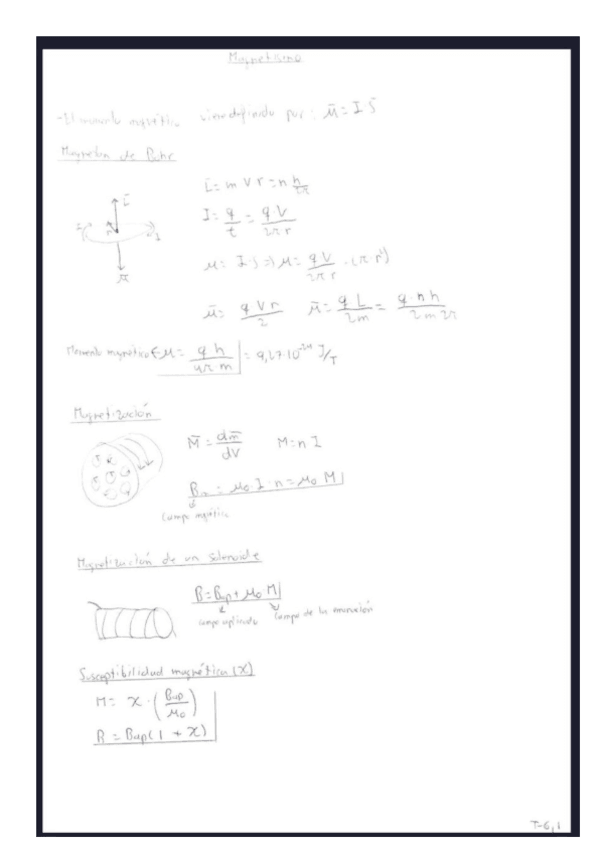 Magnetismo
-El momento magnético viene definido por: μ̄ = I·S̄
Magneton de Bohr
L̄ = m v r = n h/2π
I = q/t = q V/2π r
L̄
I
μ̄
μ = I·S ⇒ μ = q V/2π r · (π·r²)
μ̄ = q V r/2 μ̄ = q L/2m = q·n h/2m 2π
Momento magnético ← μ = q h/4π m = 9,27·10⁻²⁴ J/T
Magnetización
M̄ = dm̄/dV M = n I
Bm = μ₀·I·n = μ₀ M
Campo magnético
Magnetización de un solenoide
B = Bap + μ₀ M
campo aplicado Campo de la
Susceptibilidad magnética (χ)
M = χ·(Bap/μ₀)
B = Bap(1 + χ)
T-6,1